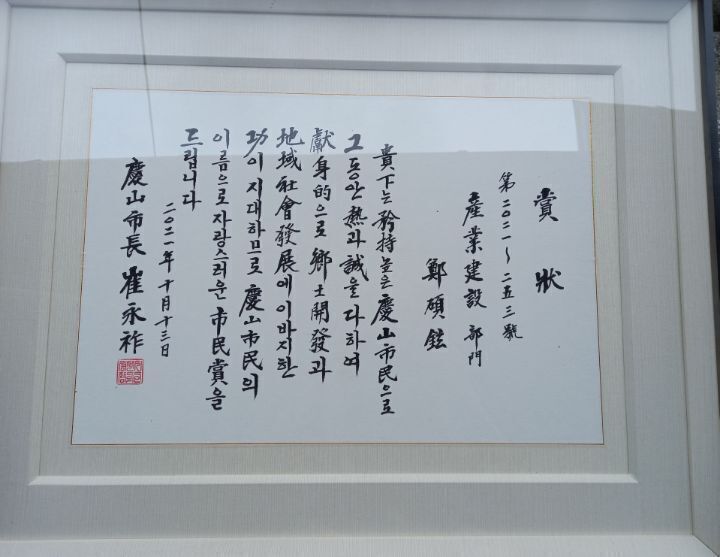 賞狀
第二〇二一～二五三號
産業建設 部門
鄭碩鉉
貴下는 矜持높은 慶山市民으로
그동안 熱과 誠을 다하여
獻身的으로 鄕土開發과
地域社會發展에 이바지한
功이 지대하므로 慶山市民의
이름으로 자랑스러운 市民賞을
드립니다
二〇二一年 十月十三日
慶山市長 崔永祚